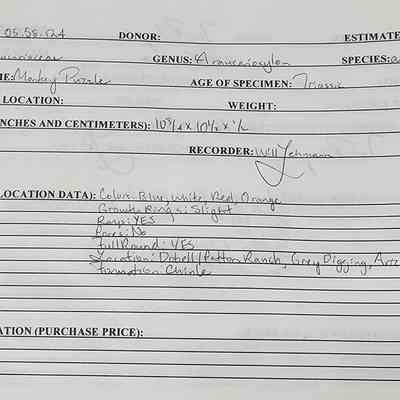 05.58.124 DONOR: ESTIMATE
GENUS: Araucarioxylon SPECIES:
E: Monkey Puzzle AGE OF SPECIMEN: Triassic
LOCATION: WEIGHT:
NCHES AND CENTIMETERS): 10 3/4 x 10 1/2 x 1/2
RECORDER: Will Lehmann
LOCATION DATA): Colors: Blue, White, Red, Orange
Growth Rings: Slight
Rays: YES
Pores: No
Full Round: YES
Location: Dobell/Patton Ranch, Grey Digging, Ariz
Formation: Chinle
ATION (PURCHASE PRICE):